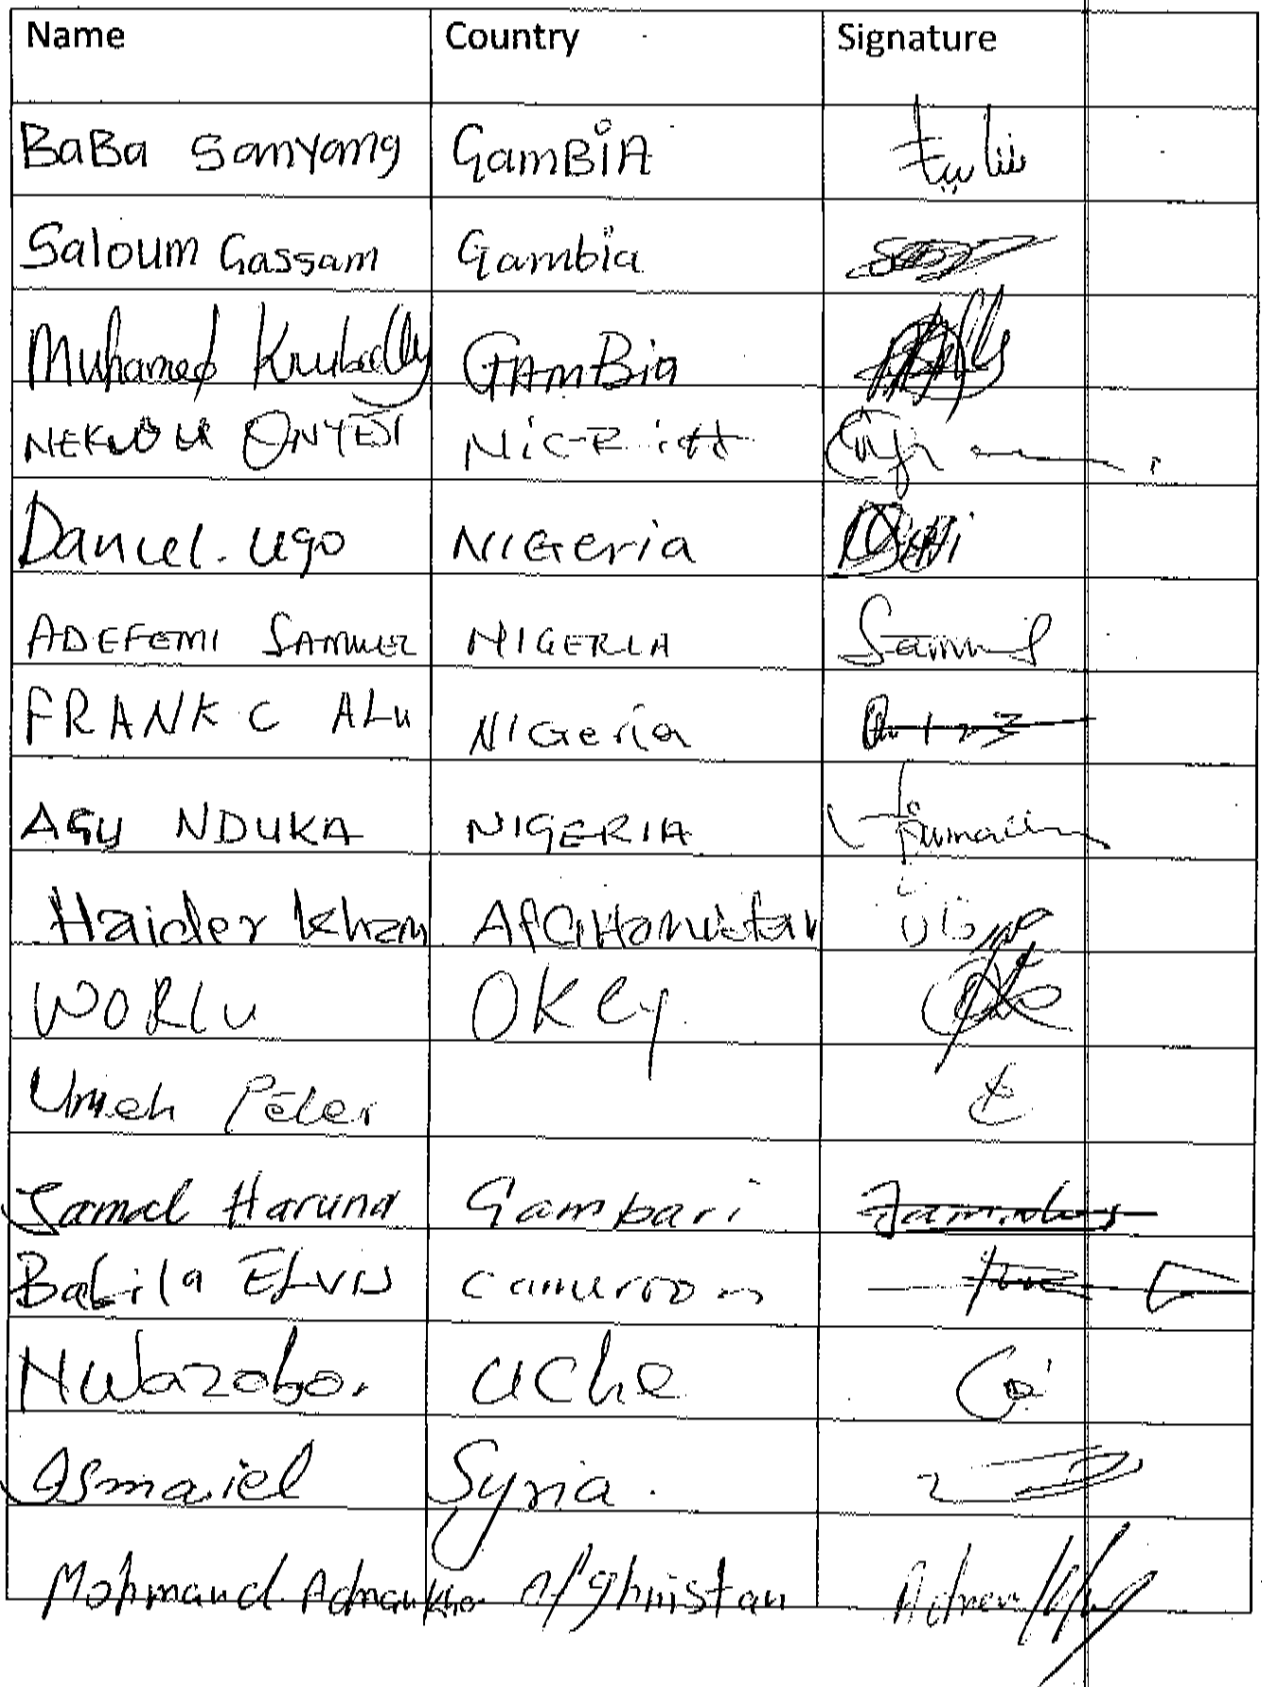 Name Country Signature
BaBa Sanyang GamBiA
Saloum Gassam Gambia
Muhamed Krubally GAMBia
ONYESI
Daniel. Ugo NIGeria
ADEFEMI SAMUEL NIGERIA Samuel
FRANK C ALU NIGeria
AGU NDUKA NIGERIA
Haider khan AfGHanistan
WORLU OKEY.
Umeh Peter
Jamal Haruna Gambari
Babila ELVIS Cameroon
Nwazobo. Uche
Ismaiel Syria.
Mohmand Adnan kha Afghnistan Adnan